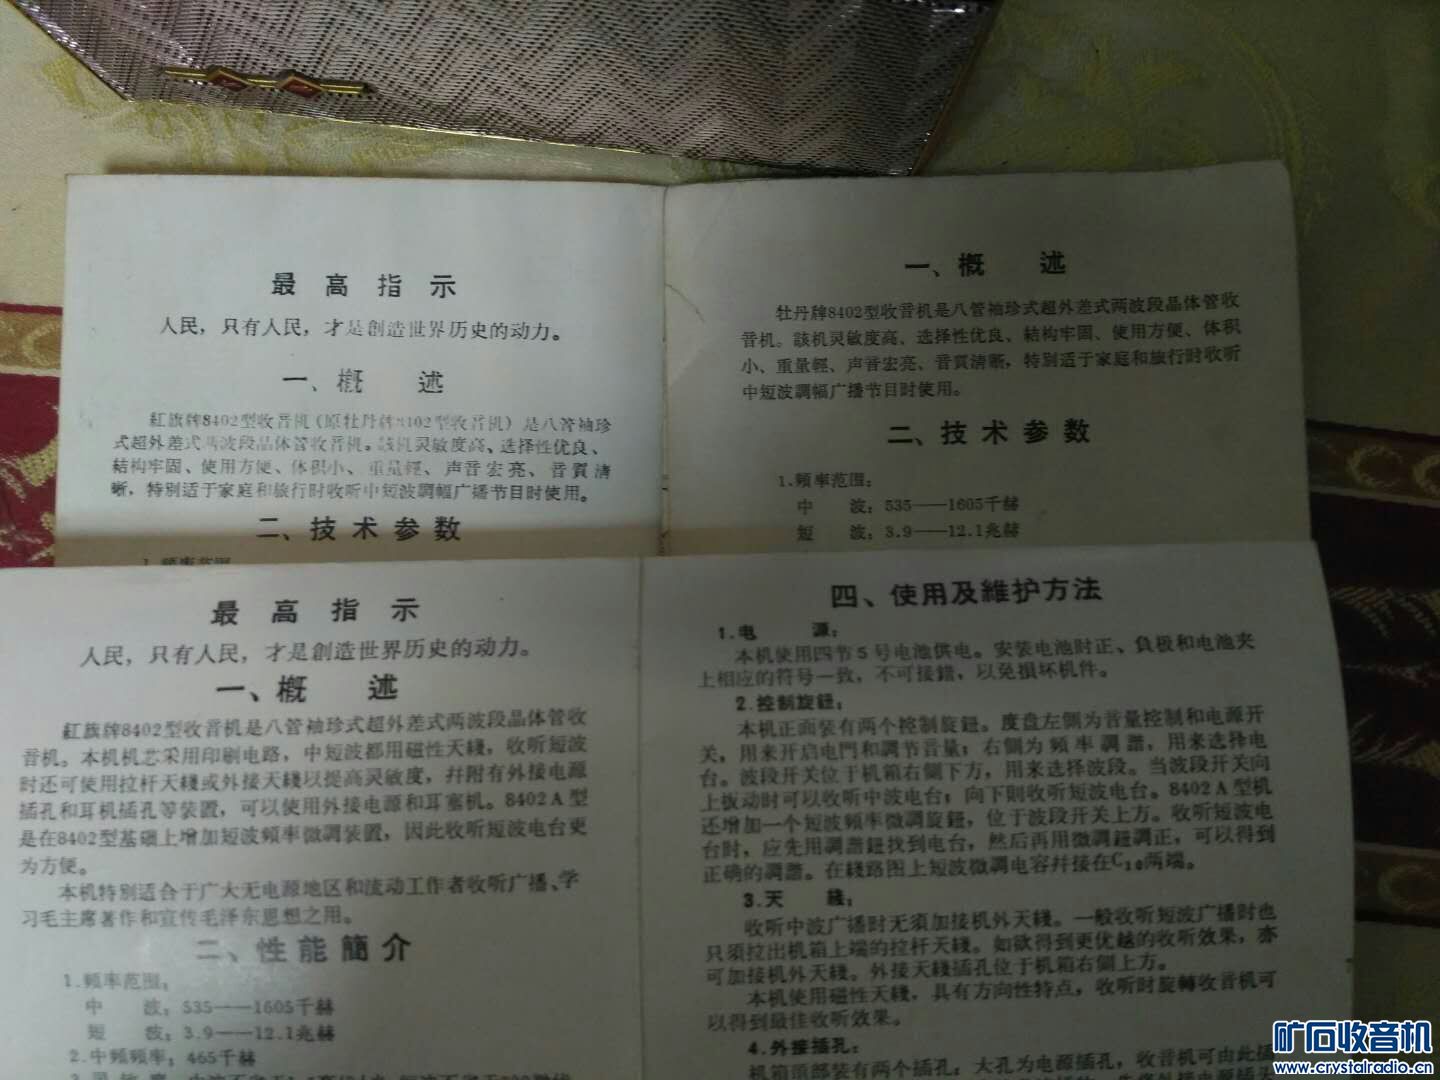 最高指示
人民，只有人民，才是創造世界历史的动力。
一、概述
紅旗牌8402型收音机（原牡丹牌8402型收音机）是八管袖珍
式超外差式两波段晶体管收音机。該机灵敏度高、选择性优良、
結构牢固、使用方便、体积小、重量輕、声音宏亮、音質清
晰，特别适于家庭和旅行时收听中短波調幅广播节目时使用。
二、技术参数
1.頻率范围
一、概述
牡丹牌8402型收音机是八管袖珍式超外差式两波段晶体管收
音机。該机灵敏度高、选择性优良、結构牢固、使用方便、体积
小、重量輕、声音宏亮、音質清晰，特别适于家庭和旅行时收听
中短波調幅广播节目时使用。
二、技术参数
1.頻率范围：
中波：535——1605千赫
短波：3.9——12.1兆赫
最高指示
人民，只有人民，才是創造世界历史的动力。
一、概述
紅旗牌8402型收音机是八管袖珍式超外差式两波段晶体管收
音机。本机机芯采用印刷电路，中短波都用磁性天綫，收听短波
时还可使用拉杆天綫或外接天綫以提高灵敏度，幷附有外接电源
插孔和耳机插孔等装置，可以使用外接电源和耳塞机。8402A型
是在8402型基础上增加短波頻率微調装置，因此收听短波电台更
为方便。
本机特别适合于广大无电源地区和流动工作者收听广播、学
习毛主席著作和宣传毛泽东思想之用。
二、性能簡介
1.頻率范围：
中波：535——1605千赫
短波：3.9——12.1兆赫
2.中頻頻率：465千赫
四、使用及維护方法
1.电源：
本机使用四节5号电池供电。安装电池时正、負极和电池夹
上相应的符号一致，不可接錯，以免損坏机件。
2.控制旋鈕：
本机正面装有两个控制旋鈕。度盘左側为音量控制和电源开
关，用来开启电門和調节音量；右側为頻率調諧，用来选择电
台。波段开关位于机箱右側下方，用来选择波段。当波段开关向
上扳动时可以收听中波电台；向下则收听短波电台。8402A型机
还增加一个短波頻率微調旋鈕，位于波段开关上方。收听短波电
台时，应先用調諧鈕找到电台，然后再用微調鈕調正，可以得到
正确的調諧。在綫路图上短波微調电容幷接在C₁₀两端。
3.天綫：
收听中波广播时无須加接机外天綫。一般收听短波广播时也
只須拉出机箱上端的拉杆天綫。如欲得到更优越的收听效果，亦
可加接机外天綫。外接天綫插孔位于机箱右側上方。
本机使用磁性天綫，具有方向性特点，收听时旋轉收音机可
以得到最佳收听效果。
4.外接插孔：
机箱頂部装有两个插孔：大孔为电源插孔，收音机可由此插
矿石收音机
www.crystalradio.cn